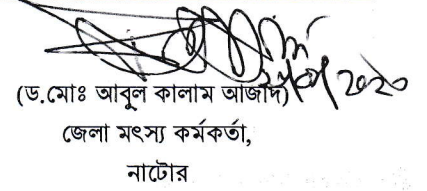 (ড.মোঃ আবুল কালাম আজাদ)
জেলা মৎস্য কর্মকর্তা,
নাটোর